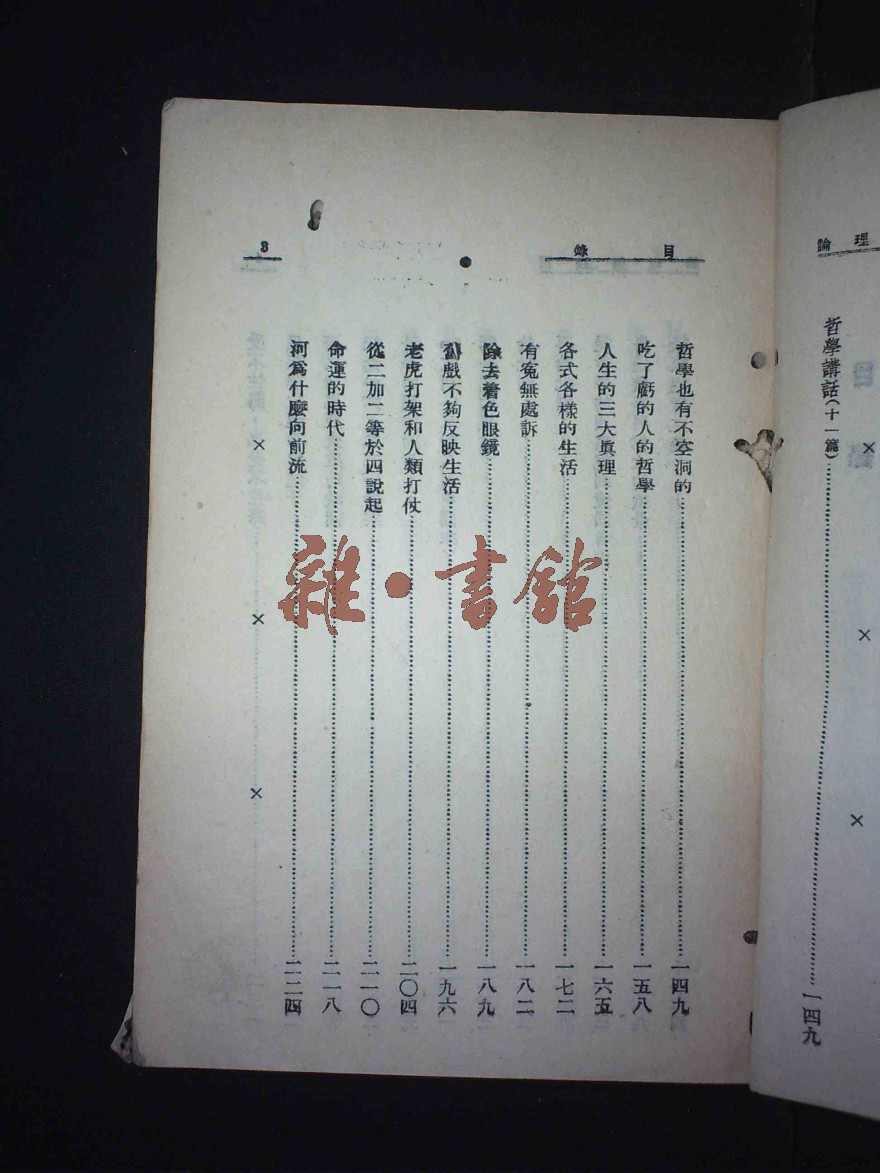 論理
哲學講話(十一篇)……一四九
目錄
3
哲學也有不空洞的……一四九
吃了虧的人的哲學……一五八
人生的三大眞理……一六五
各式各樣的生活……一七二
有冤無處訴……一八二
除去着色眼鏡……一八九
舊戲不夠反映生活……一九六
老虎打架和人類打仗……二〇四
從二加二等於四說起……二一〇
命運的時代……二一八
河爲什麼向前流……二二四
× × ×
雜·書館